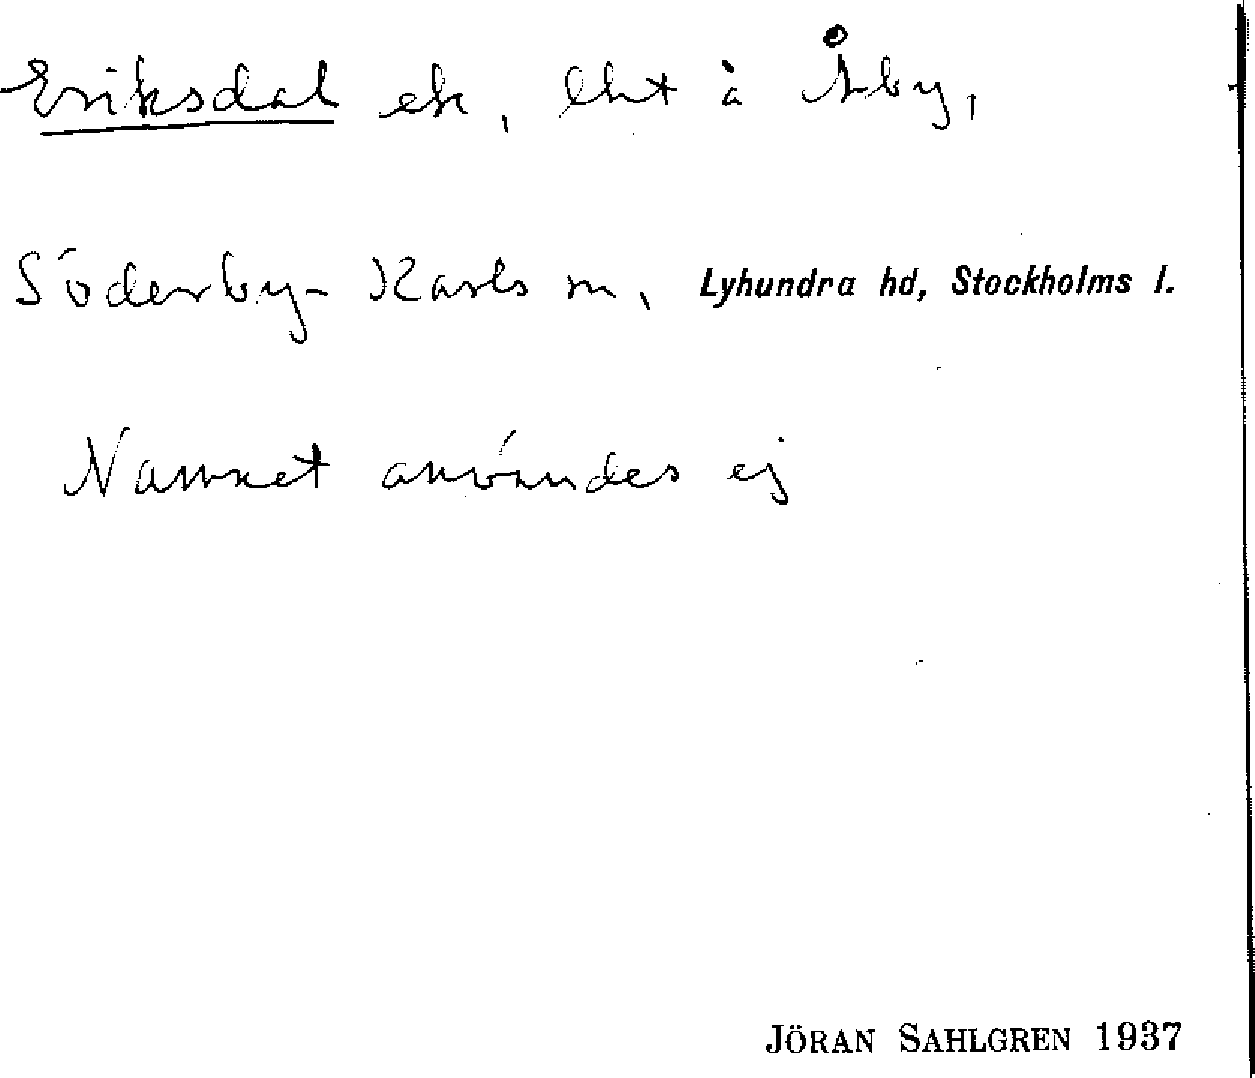 Eriksdal ek, lht å Åby,
Söderby-Karls sn, Lyhundra hd, Stockholms l.
Namnet användes ej
JÖRAN SAHLGREN 1937